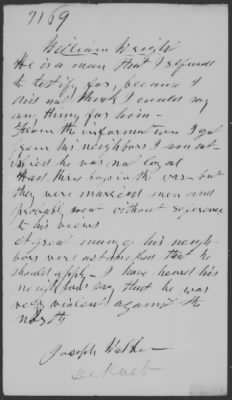 7169
William Wright
He is a man that I refused
to testify for, because I
did not think I could say
any thing for him -
From the information I got
from his neighbors I am sat-
isfied he was not loyal
Had three boys in the war - but
they were married men and
probably went without reference
to his views
A great many of his neigh-
bors were astonished that he
should apply - I have heard his
neighbors say that he was
very violent against the
north
Joseph